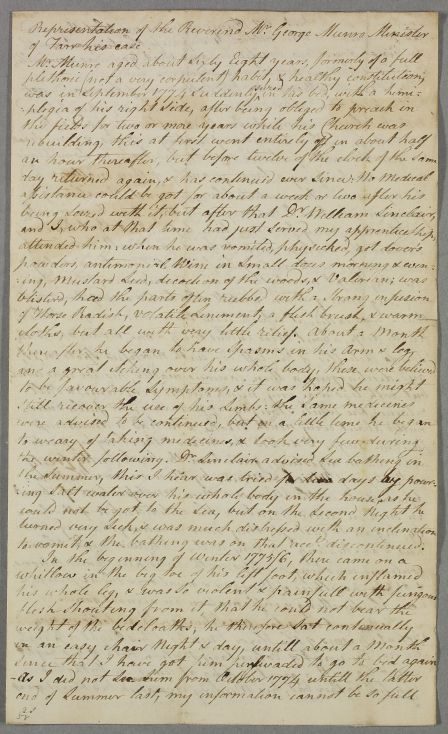 Representation of the Reverend Mr George Munro Minister
of Farr his case
Mr Munro aged about Sixty Eight years, formerly of a full
plethoric (not a very corpulent) habit, & healthy constitution,
was in September 1774 Suddenly seized in his bed, with a hemi-
plegia of his right Side, after being obliged to preach in
the fields for two or more years while his Church was
rebuilding, this at first went entirely off in about half
an hour thereafter, but before twelve of the clock of the same
day returned again, & has continued ever Since. No Medical
assistance could be got for about a week or two after his
being Seized with it, but after that Dr William Sinclair,
and I, who at that time had just Served my apprenticeship,
attended him; when he was vomited, physicked, got dover's
powders, antimonial Wine in Small doses morning & even-
ing, Mustard Seed, decoction of the woods, & Valerian; was
blistered, had the parts often rubbed with a Strong infusion
of Horse Radish, volatile Liniment, a flesh brush, & warm
cloths, but all with very little relief. About a Month
thereafter he began to have Spasms in his Arm & leg,
and a great itching over his whole body, these were believed
to be favourable Symptoms, & it was hoped he might
Still recover the use of his limbs: the Same medicines
were advised to be continued, but in a little time he began
to weary of taking medicines, & took very few during
the winter following. Dr Sinclair advised Sea bathing in
the Summer, this I hear was tried two days by pour-
ing Salt water over his whole body in the house, as he
could not be got to the Sea, but on the Second Night he
turned very Sick, & was much distressed with an inclination
to vomit, & the bathing was on that acct discontinued.
In the beginning of Winter 1775/6, there came on a
whitlow in the big toe of his left foot, which inflamed
his whole leg, & was So violent & painfull with fungous
flesh Shouting from it that he could not bear the
weight of the bedcloaths, he therefore Sat continually
in an easy chair Night & day, untill about a Month
since that I have got him perswaded to go to bed again
As I did not See him from October 1774, untill the latter
end of Summer last, my information cannot be so full